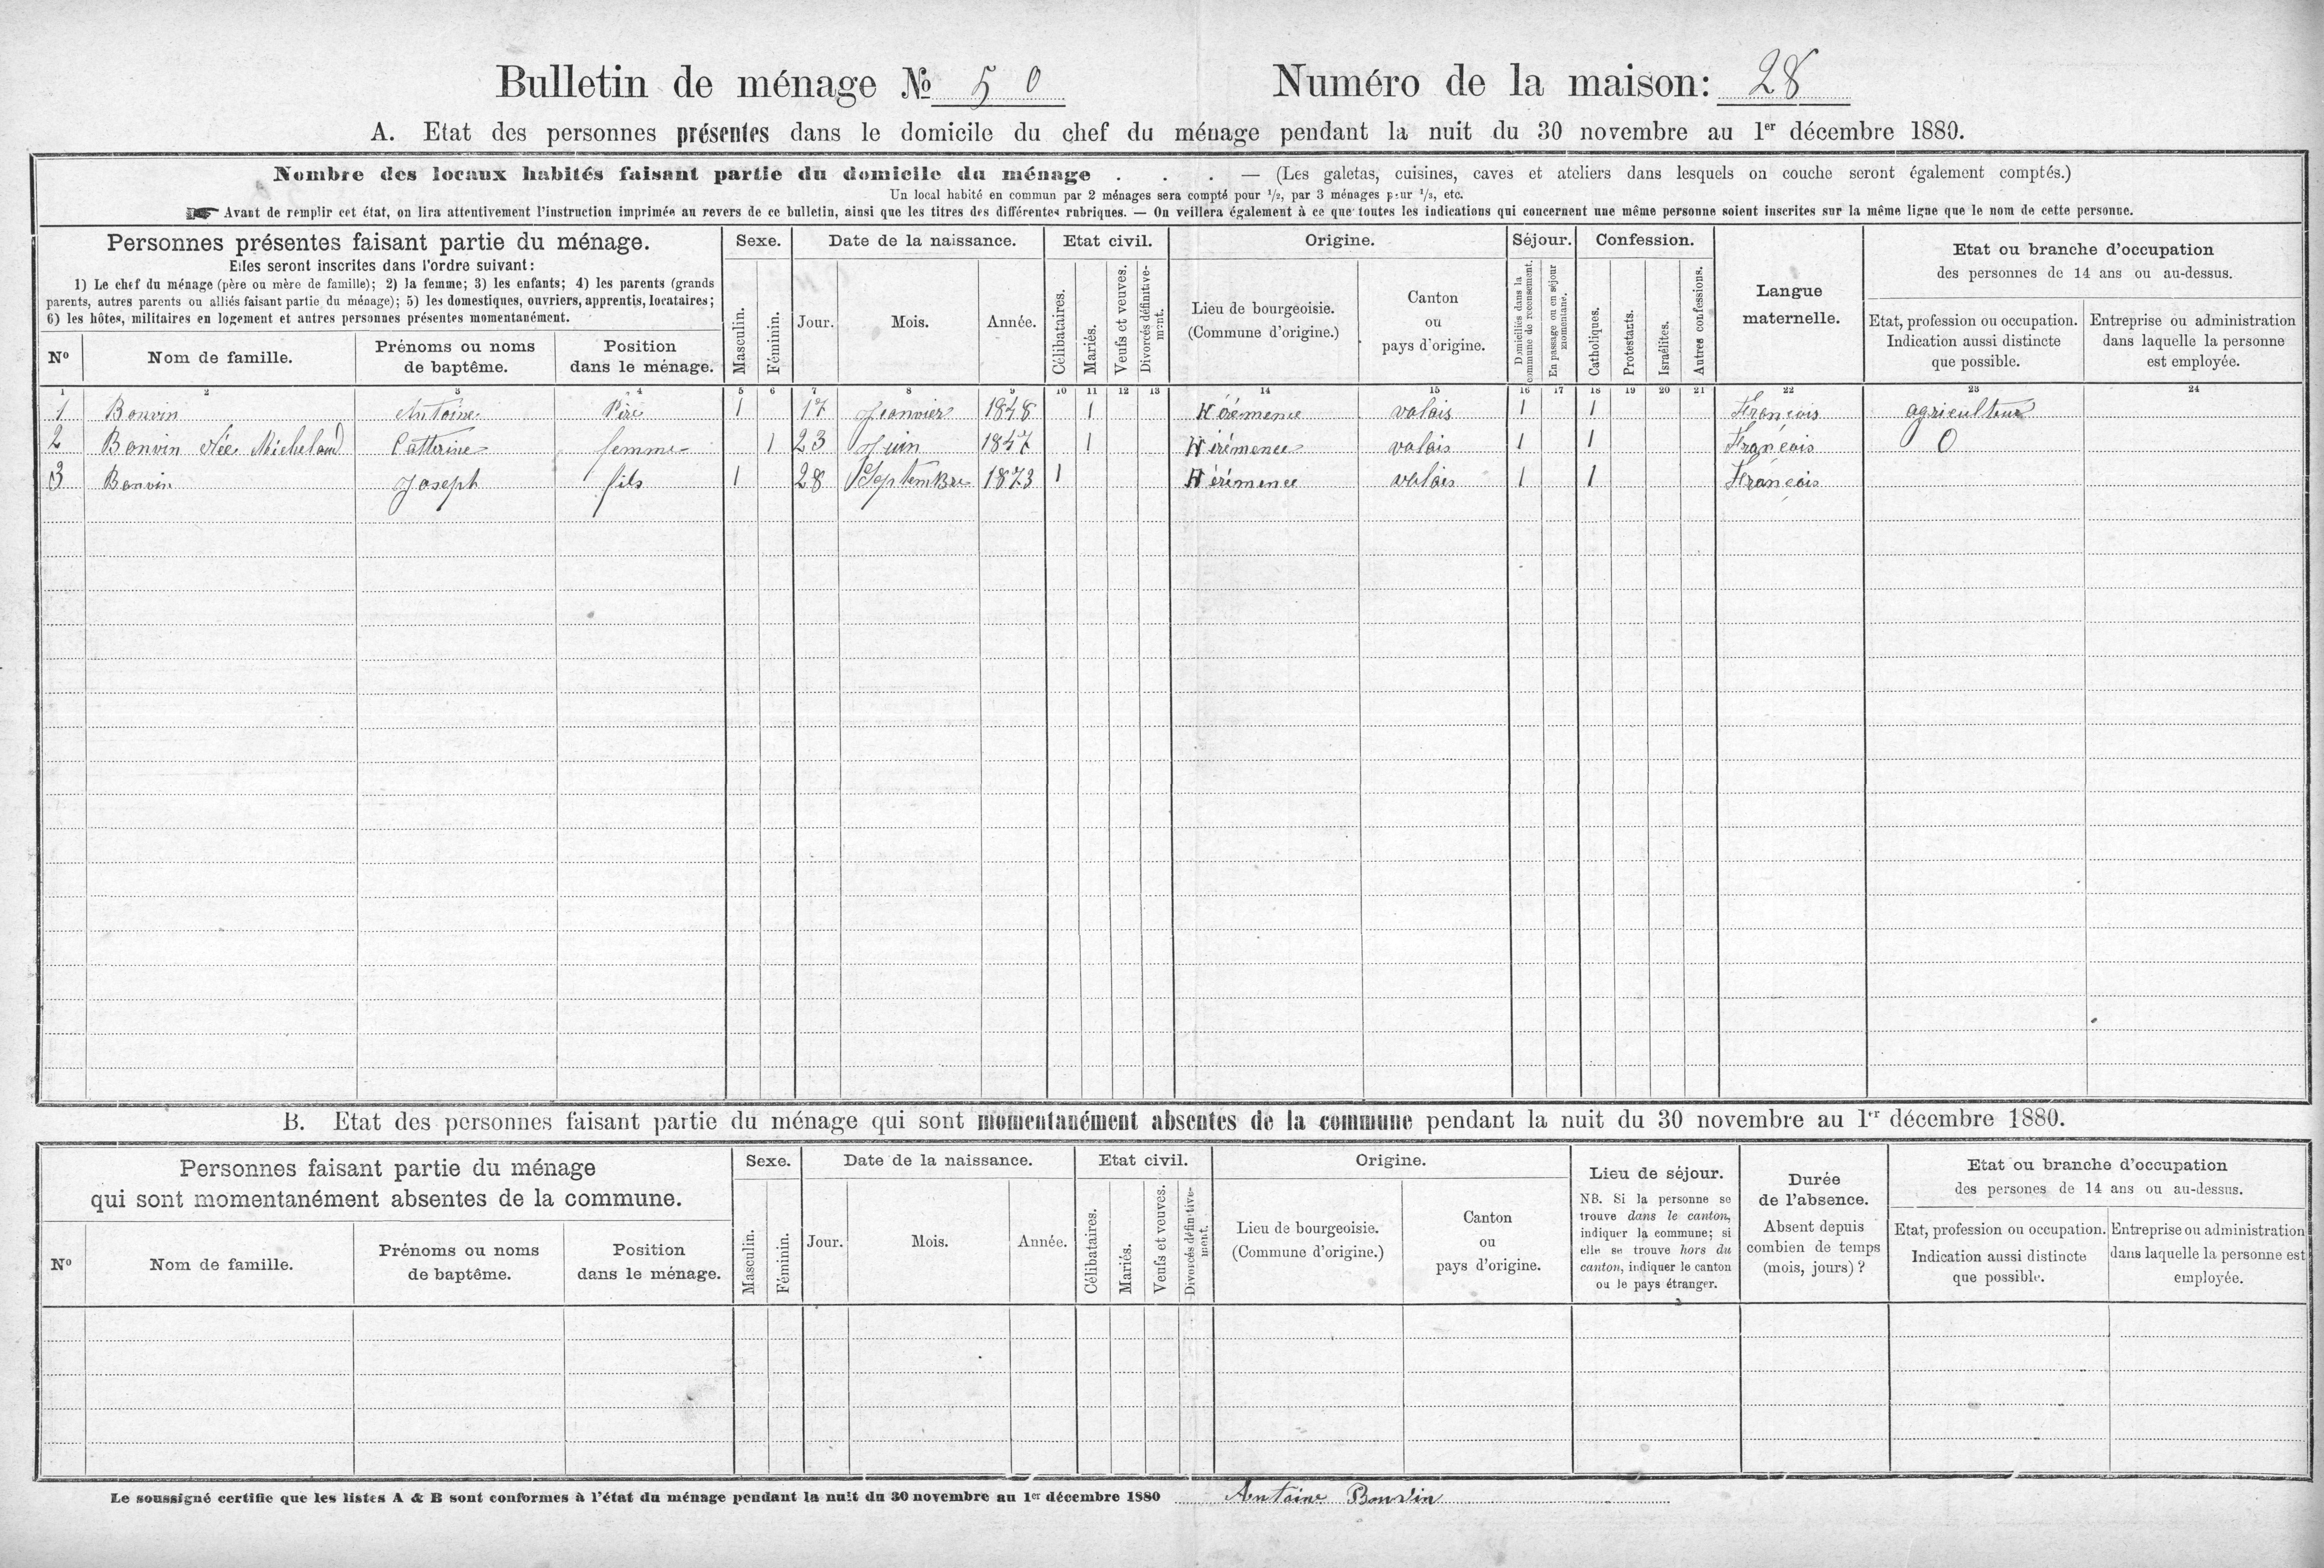 Bulletin de ménage № 50 Numéro de la maison: 28
A. Etat des personnes présentes dans le domicile du chef du ménage pendant la nuit du 30 novembre au 1er décembre 1880.
Nombre des locaux habités faisant partie du domicile du ménage . . . — (Les galetas, cuisines, caves et ateliers dans lesquels on couche seront également comptés.)
Un local habité en commun par 2 ménages sera compté pour 1/2, par 3 ménages pour 1/3, etc.
☛ Avant de remplir cet état, on lira attentivement l'instruction imprimée au revers de ce bulletin, ainsi que les titres des différentes rubriques. — On veillera également à ce que toutes les indications qui concernent une même personne soient inscrites sur la même ligne que le nom de cette personne.
Personnes présentes faisant partie du ménage.
Elles seront inscrites dans l'ordre suivant:
1) Le chef du ménage (père ou mère de famille); 2) la femme; 3) les enfants; 4) les parents (grands
parents, autres parents ou alliés faisant partie du ménage); 5) les domestiques, ouvriers, apprentis, locataires;
6) les hôtes, militaires en logement et autres personnes présentes momentanément.
No
Nom de famille.
Prénoms ou noms
de baptême.
Position
dans le ménage.
Sexe.
Masculin.
Féminin.
Date de la naissance.
Jour.
Mois.
Année.
Etat civil.
Célibataires.
Mariés.
Veufs et veuves.
Divorcés définitive-
ment.
Origine.
Lieu de bourgeoisie.
(Commune d'origine.)
Canton
ou
pays d'origine.
Séjour.
Domiciliés dans la
commune de recensement.
En passage ou en séjour
momentané.
Confession.
Catholiques.
Protestants.
Israélites.
Autres confessions.
Langue
maternelle.
Etat ou branche d'occupation
des personnes de 14 ans ou au-dessus.
Etat, profession ou occupation.
Indication aussi distincte
que possible.
Entreprise ou administration
dans laquelle la personne
est employée.
1 2 3 4 5 6 7 8 9 10 11 12 13 14 15 16 17 18 19 20 21 22 23 24
1 Bonvin Antoine Père 1 17 Jeanvier 1848 1 Hérémence valais 1 1 Francois agriculteur
2 Bonvin Née Micheloud Catterine femme 1 23 Juin 1847 1 Hérémence valais 1 1 Francois 0
3 Bonvin Joseph fils 1 28 Septembre 1873 1 Hérémence valais 1 1 Francois
B. Etat des personnes faisant partie du ménage qui sont momentanément absentes de la commune pendant la nuit du 30 novembre au 1er décembre 1880.
Personnes faisant partie du ménage
qui sont momentanément absentes de la commune.
No
Nom de famille.
Prénoms ou noms
de baptême.
Position
dans le ménage.
Sexe.
Masculin.
Féminin.
Date de la naissance.
Jour.
Mois.
Année.
Etat civil.
Célibataires.
Mariés.
Veufs et veuves.
Divorcés définitive-
ment.
Origine.
Lieu de bourgeoisie.
(Commune d'origine.)
Canton
ou
pays d'origine.
Lieu de séjour.
NB. Si la personne se
trouve dans le canton,
indiquer la commune; si
elle se trouve hors du
canton, indiquer le canton
ou le pays étranger.
Durée
de l'absence.
Absent depuis
combien de temps
(mois, jours) ?
Etat ou branche d'occupation
des persones de 14 ans ou au-dessus.
Etat, profession ou occupation.
Indication aussi distincte
que possible.
Entreprise ou administration
dans laquelle la personne est
employée.
Le soussigné certifie que les listes A & B sont conformes à l'état du ménage pendant la nuit du 30 novembre au 1er décembre 1880 Antoine Bonvin